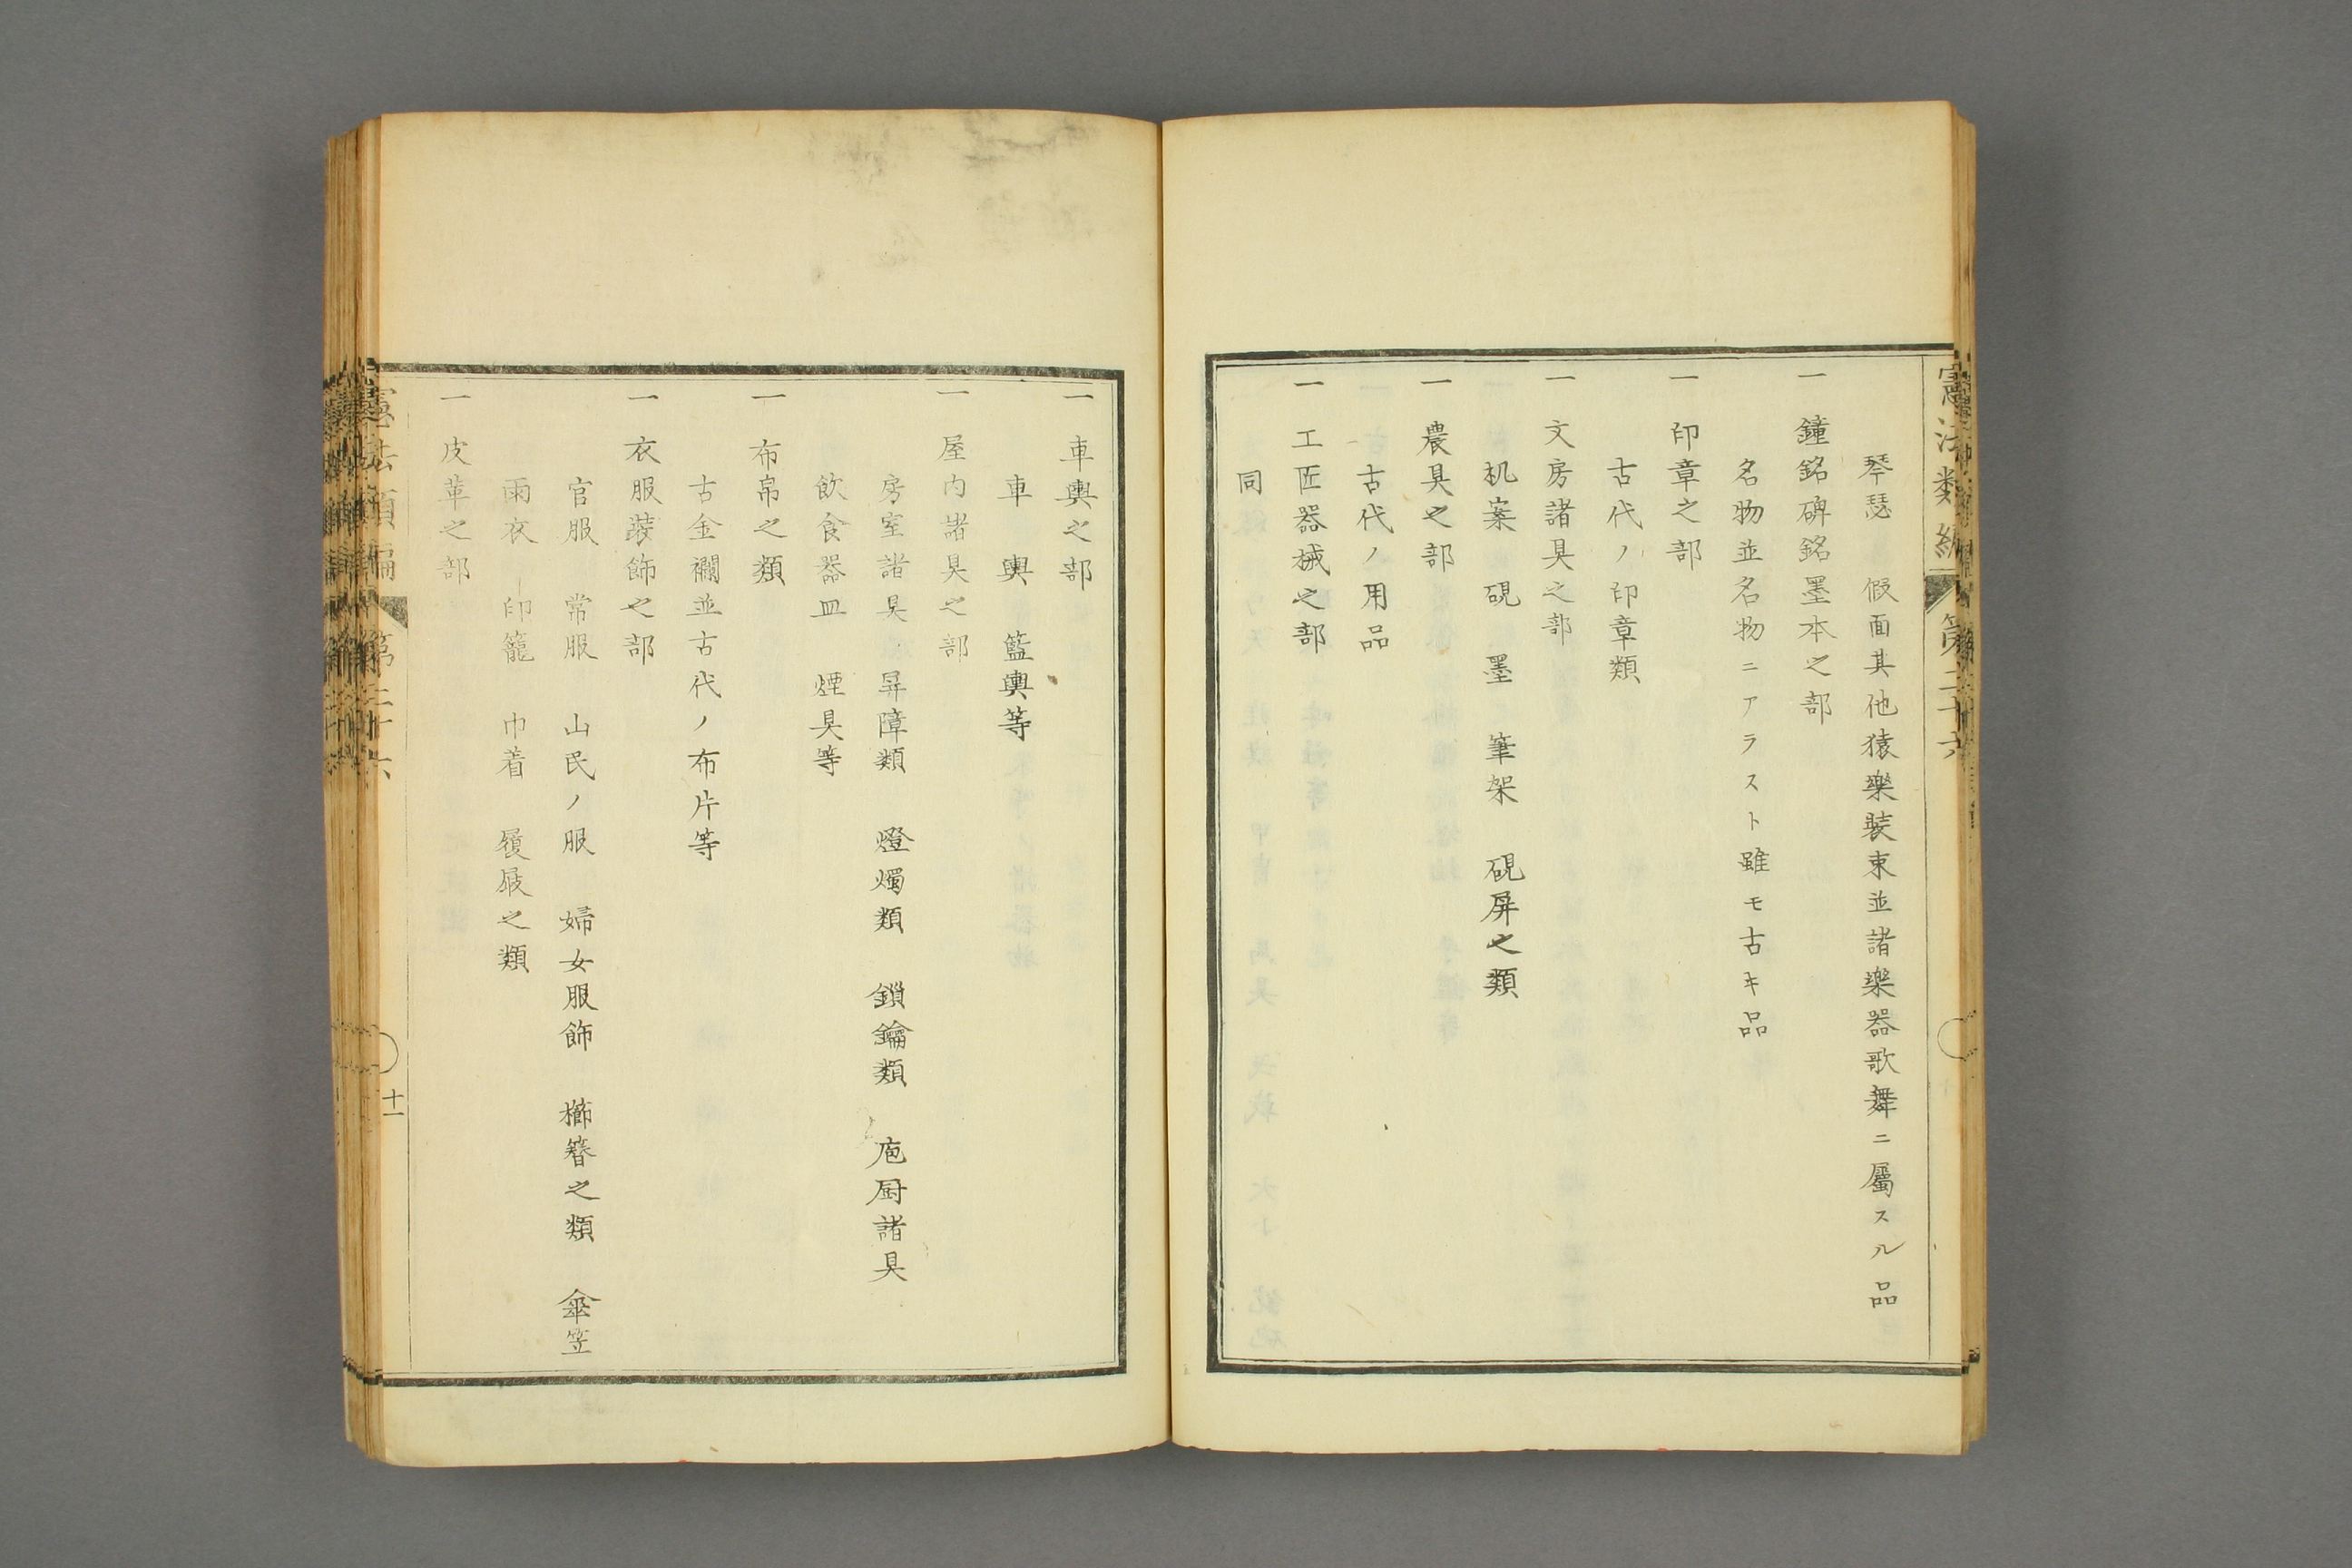 憲法類編 第二十六
琴瑟 假面其他猿樂裝束並諸樂器歌舞ニ屬スル品
一 鐘銘碑銘墨本之部
名物並名物ニアラスト雖モ古キ品
一 印章之部
古代ノ印章類
一 文房諸具之部
机案 硯 墨 筆架 硯屏之類
一 農具之部
古代ノ用品
一 工匠器械之部
同
一 車輿之部
車 輿 籃輿等
一 屋内諸具之部
房室諸具 屏障類 燈燭類 鎖鑰類 庖厨諸具
飲食器皿 煙具等
一 布帛之類
古金襴並古代ノ布片等
一 衣服裝飾之部
官服 常服 山民ノ服 婦女服飾 櫛簪之類 傘笠
雨衣 印籠 巾着 履屐之類
一 皮革之部
憲法類編 第二十六 十一